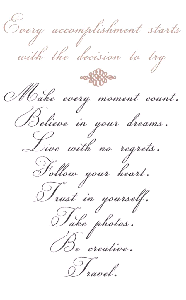 Every accomplishment starts
with the decision to try
Make every moment count.
Believe in your dreams.
Live with no regrets.
Follow your heart.
Trust in yourself.
Take photos.
Be creative.
Travel.